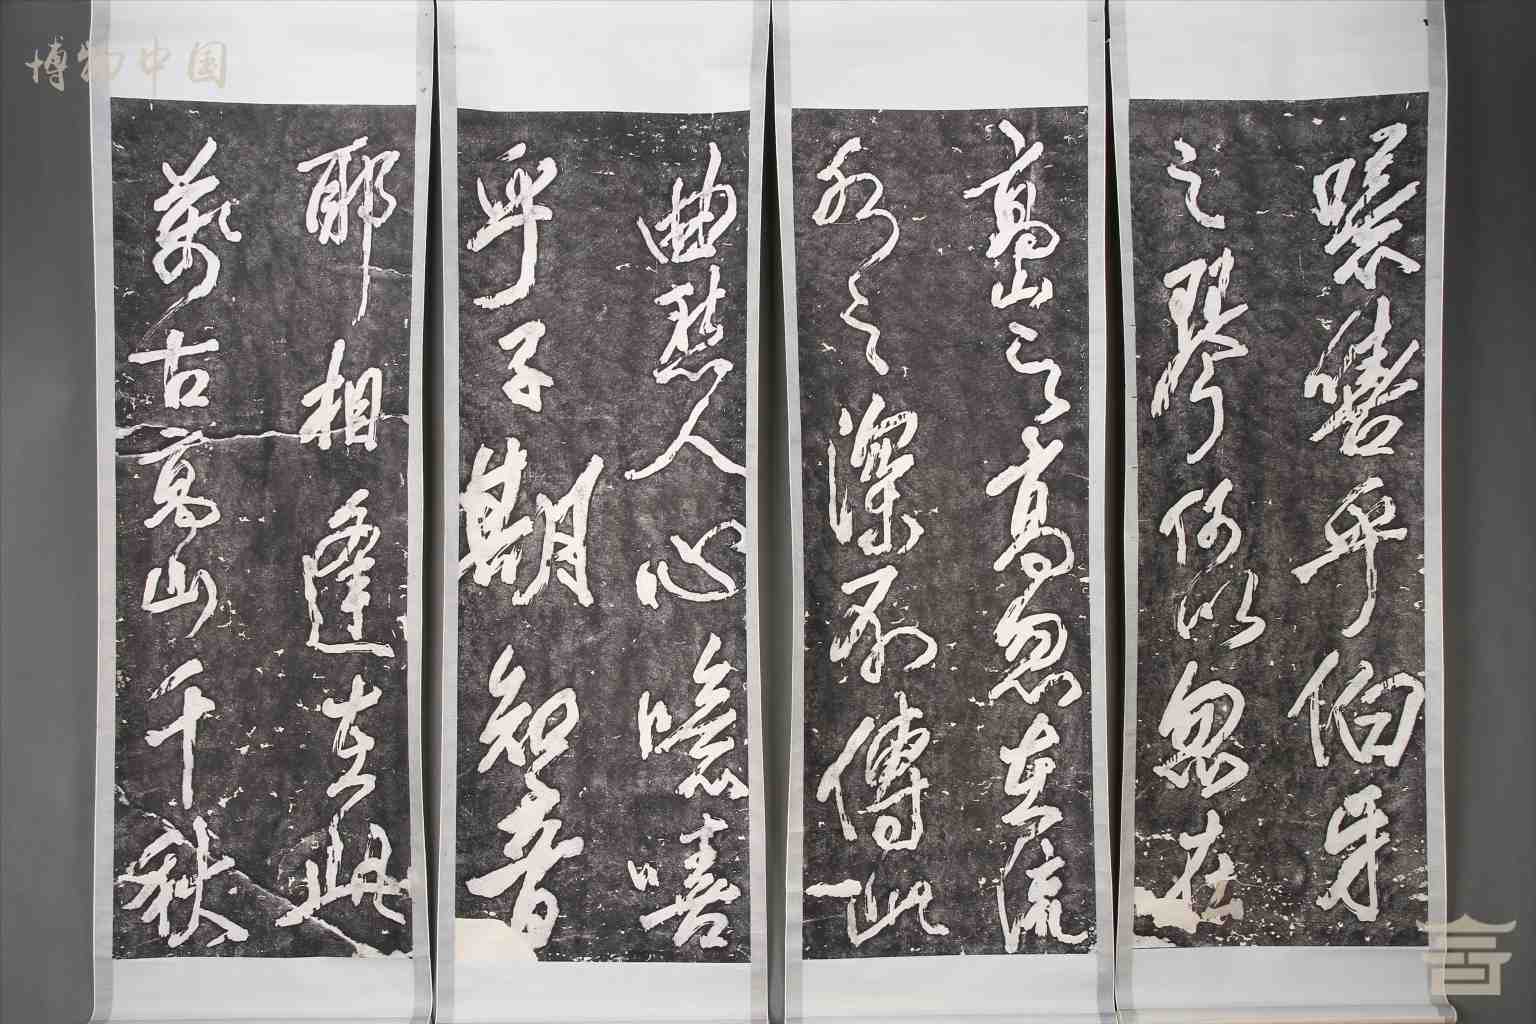 噫嘻乎伯牙
之琴何以忽在
高山之高忽在流
水之深不傳此
曲愁人心噫嘻
乎子期知音
耶相逢在此
萬古高山千秋
博物中国